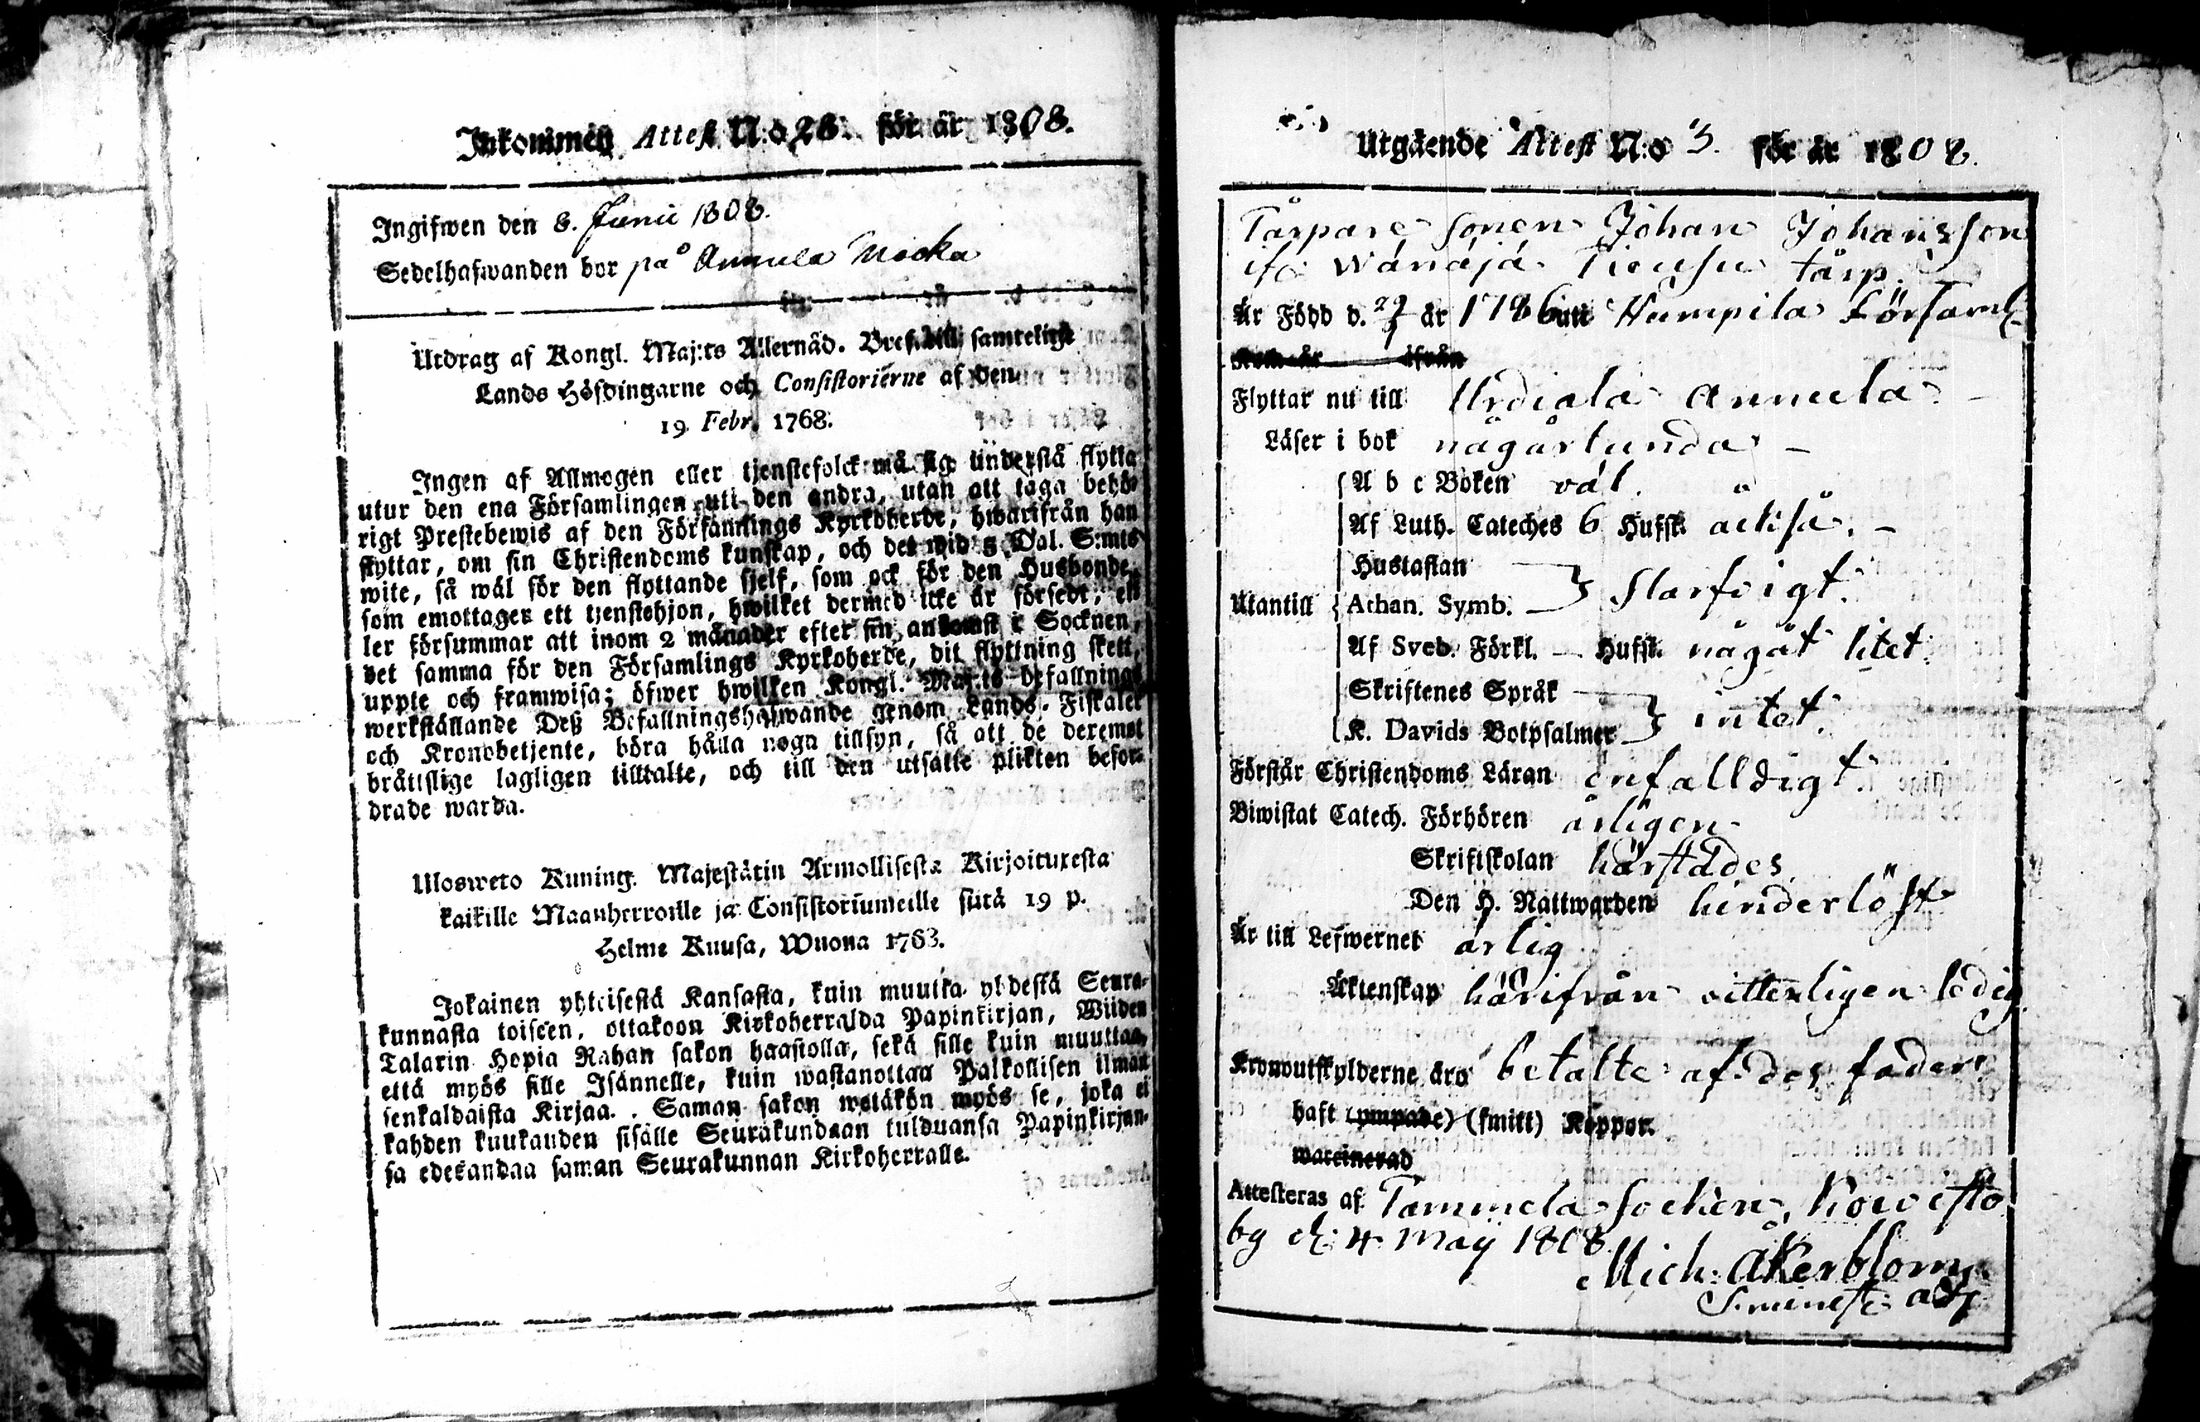 Inkommen Attest N:o 28. för år 1808.
Ingifwen den 8. Junii 1808.
Sedelhafwanden bor på Annula
Utdrag af Kongl. Maj:ts Allernåd. Bref till samtelige
Lands Höfdingarne och Consistorierne af den
19 Febr. 1768.
Ingen af Allmogen eller tjenstefolck må sig understå flytta
utur den ena Församlingen uti den andra, utan att taga behö-
rigt Prestebewis af den Församlings Kyrkoherde, hwarifrån han
flyttar, om sin Christendoms kunskap, och det wid 5 Dal. S:mts
wite, så wäl för den flyttande sjelf, som ock för den Husbonde,
som emottager ett tjenstehjon, hwilket dermed icke är försedt, el-
ler försummar att inom 2 månader efter sin ankomst i Socknen,
det samma för den Församlings Kyrkoherde, dit flyttning skett,
uppte och framwisa; öfwer hwilken Kongl. Maj:ts befallnings
werkställande Deß Befallningshafwande genom Lands-Fiskaler
och Kronobetjente, böra hålla noga tillsyn, så att de deremot
bråttslige lagligen tilltalte, och till den utsatte plikten befor-
drade warda.
Ulosweto Kuning. Majestätin Armollisesta Kirjoituxesta
kaikille Maanherroille ja Consistoriumeille siitä 19 p.
Helme Kuusa, Wuona 1763.
Jokainen yhteisestä Kansasta, kuin muutta yhdestä Seura-
kunnasta toiseen, ottakoon Kirkoherralda Papinkirjan, Wiiden
Talarin Hopia Rahan sakon haastolla, sekä sille kuin muuttaa,
että myös sille Isännelle, kuin wastanottaa Palkollisen ilman
senkaldaista Kirjaa. Saman sakon wetäkön myös se, joka ei
kahden kuukauden sisälle Seurakundaan tulduansa Papinkirjan-
sa edesandaa saman Seurakunnan Kirkoherralle.
Utgående Attest N:o 3. för år 1808.
Tårpare sonen Johan Johansson
ifr. Wänäjä tårp.
Är Född d. 29 år 1786 uti Humpila Församl.
Kom år ifrån
Flyttar nu till Urdiala Annula
Läser i bok någårlunda
A b c Boken väl
Af Luth. Cateches 6 Hufst. äckså.
Hustaflan
Utantill Athan. Symb. Slarfvigt.
Af Sveb. Förkl. Hufst. någåt litet.
Skriftenes Språk
K. Davids Botpsalmer intet.
Förstår Christendoms Läran enfalldigt.
Biwistat Catech. Förhören årligen
Skriftskolan härstädes.
Den H. Nattwarden hinderlöst
Är till Lefwernet ärlig
Äktenskap härifrån vitterligen ledig
Kronoutskylderne äro betalte af des fader.
haft (ympade) (smitt) Koppor.
waccinerad
Attesteras af Tammela Socken, Koivisto
by d. 4 Maij 1808.
Mich: Åkerblom
adj